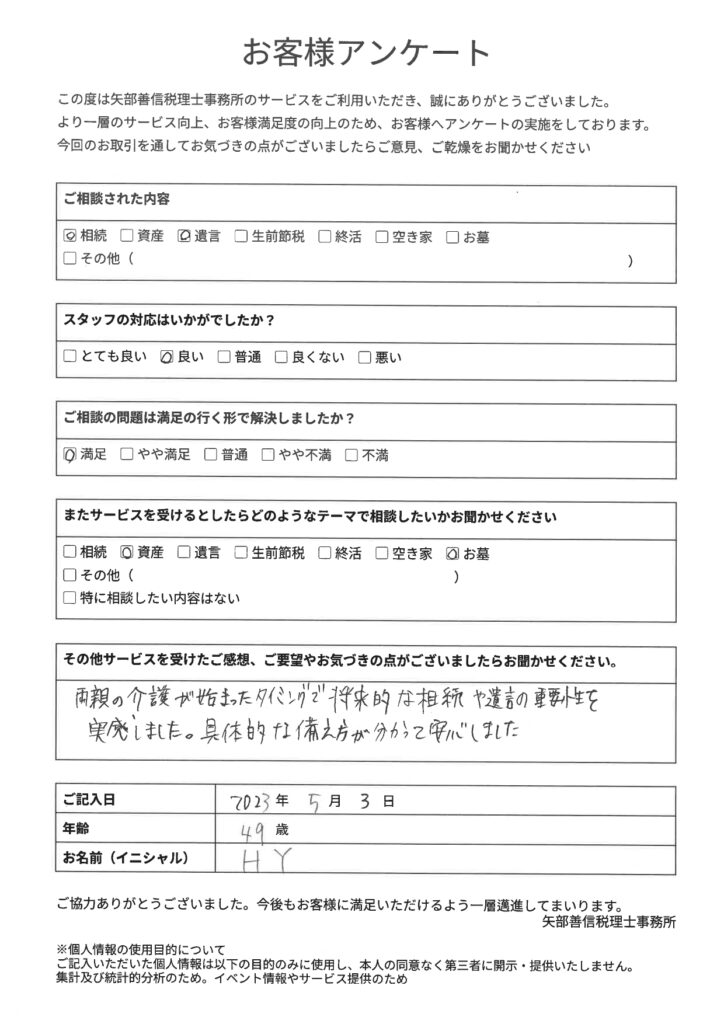 お客様アンケート
この度は矢部善信税理士事務所のサービスをご利用いただき、誠にありがとうございました。
より一層のサービス向上、お客様満足度の向上のため、お客様へアンケートの実施をしております。
今回のお取引を通してお気づきの点がございましたらご意見、ご乾燥をお聞かせください
ご相談された内容
☑相続 □資産 ☑遺言 □生前節税 □終活 □空き家 □お墓
□その他（ ）
スタッフの対応はいかがでしたか？
□とても良い ☑良い □普通 □良くない □悪い
ご相談の問題は満足の行く形で解決しましたか？
☑満足 □やや満足 □普通 □やや不満 □不満
またサービスを受けるとしたらどのようなテーマで相談したいかお聞かせください
□相続 ☑資産 □遺言 □生前節税 □終活 □空き家 ☑お墓
□その他（ ）
□特に相談したい内容はない
その他サービスを受けたご感想、ご要望やお気づきの点がございましたらお聞かせください。
両親の介護が始まったタイミングで将来的な相続や遺言の重要性を
実感しました。具体的な備え方が分かって安心しました
ご記入日 2023年 5月 3日
年齢 49歳
お名前（イニシャル） H Y
ご協力ありがとうございました。今後もお客様に満足いただけるよう一層邁進してまいります。
矢部善信税理士事務所
※個人情報の使用目的について
ご記入いただいた個人情報は以下の目的のみに使用し、本人の同意なく第三者に開示・提供いたしません。
集計及び統計的分析のため。イベント情報やサービス提供のため